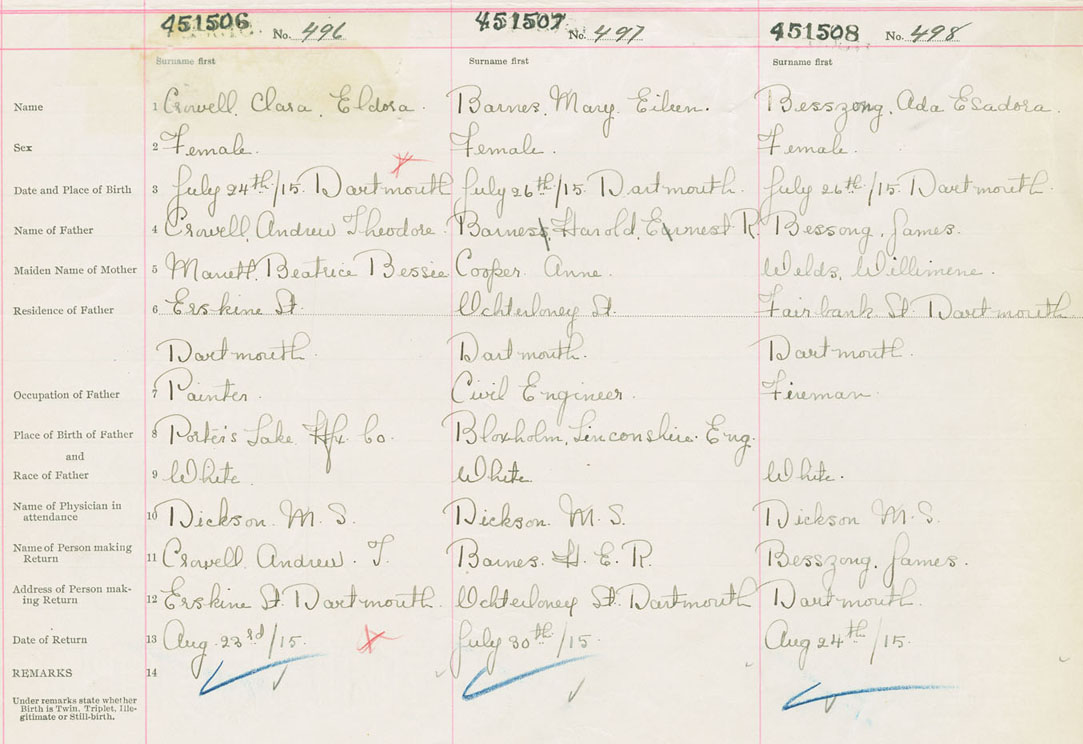 451506 No. 496 451507 No. 497 451508 No. 498
Surname first Surname first Surname first
Name 1 Crowell, Clara, Eldora. Barnes, Mary, Eileen. Besszong, Ada Esadora.
Sex 2 Female. Female. Female.
Date and Place of Birth 3 July 24th/15. Dartmouth July 26th/15. Dartmouth. July 26th/15. Dartmouth.
Name of Father 4 Crowell, Andrew Theodore. Barnes, Harold, Ernest R. Bessong, James.
Maiden Name of Mother 5 Beatrice Bessie Cooper Anne. Welds, Willimene.
Residence of Father 6 Erskine St. Ochterloney St. Fairbank St. Dartmouth.
Dartmouth. Dartmouth. Dartmouth.
Occupation of Father 7 Painter. Civil Engineer. Fireman.
Place of Birth of Father 8 Porter's Lake Hfx Co. Bloxholm, Linconshire. Eng.
and
Race of Father 9 White. White. White.
Name of Physician in
attendance 10 Dickson. M. S. Dickson. M. S. Dickson M. S.
Name of Person making
Return 11 Crowell, Andrew. T. Barnes. H. E. R. Besszong, James.
Address of Person mak-
ing Return 12 Erskine St. Dartmouth. Ochterloney St. Dartmouth Dartmouth.
Date of Return 13 Aug. 23rd/15. July 30th/15 Aug 24th/15.
REMARKS 14
Under remarks state whether
Birth is Twin, Triplet, Ille-
gitimate or Still-birth.